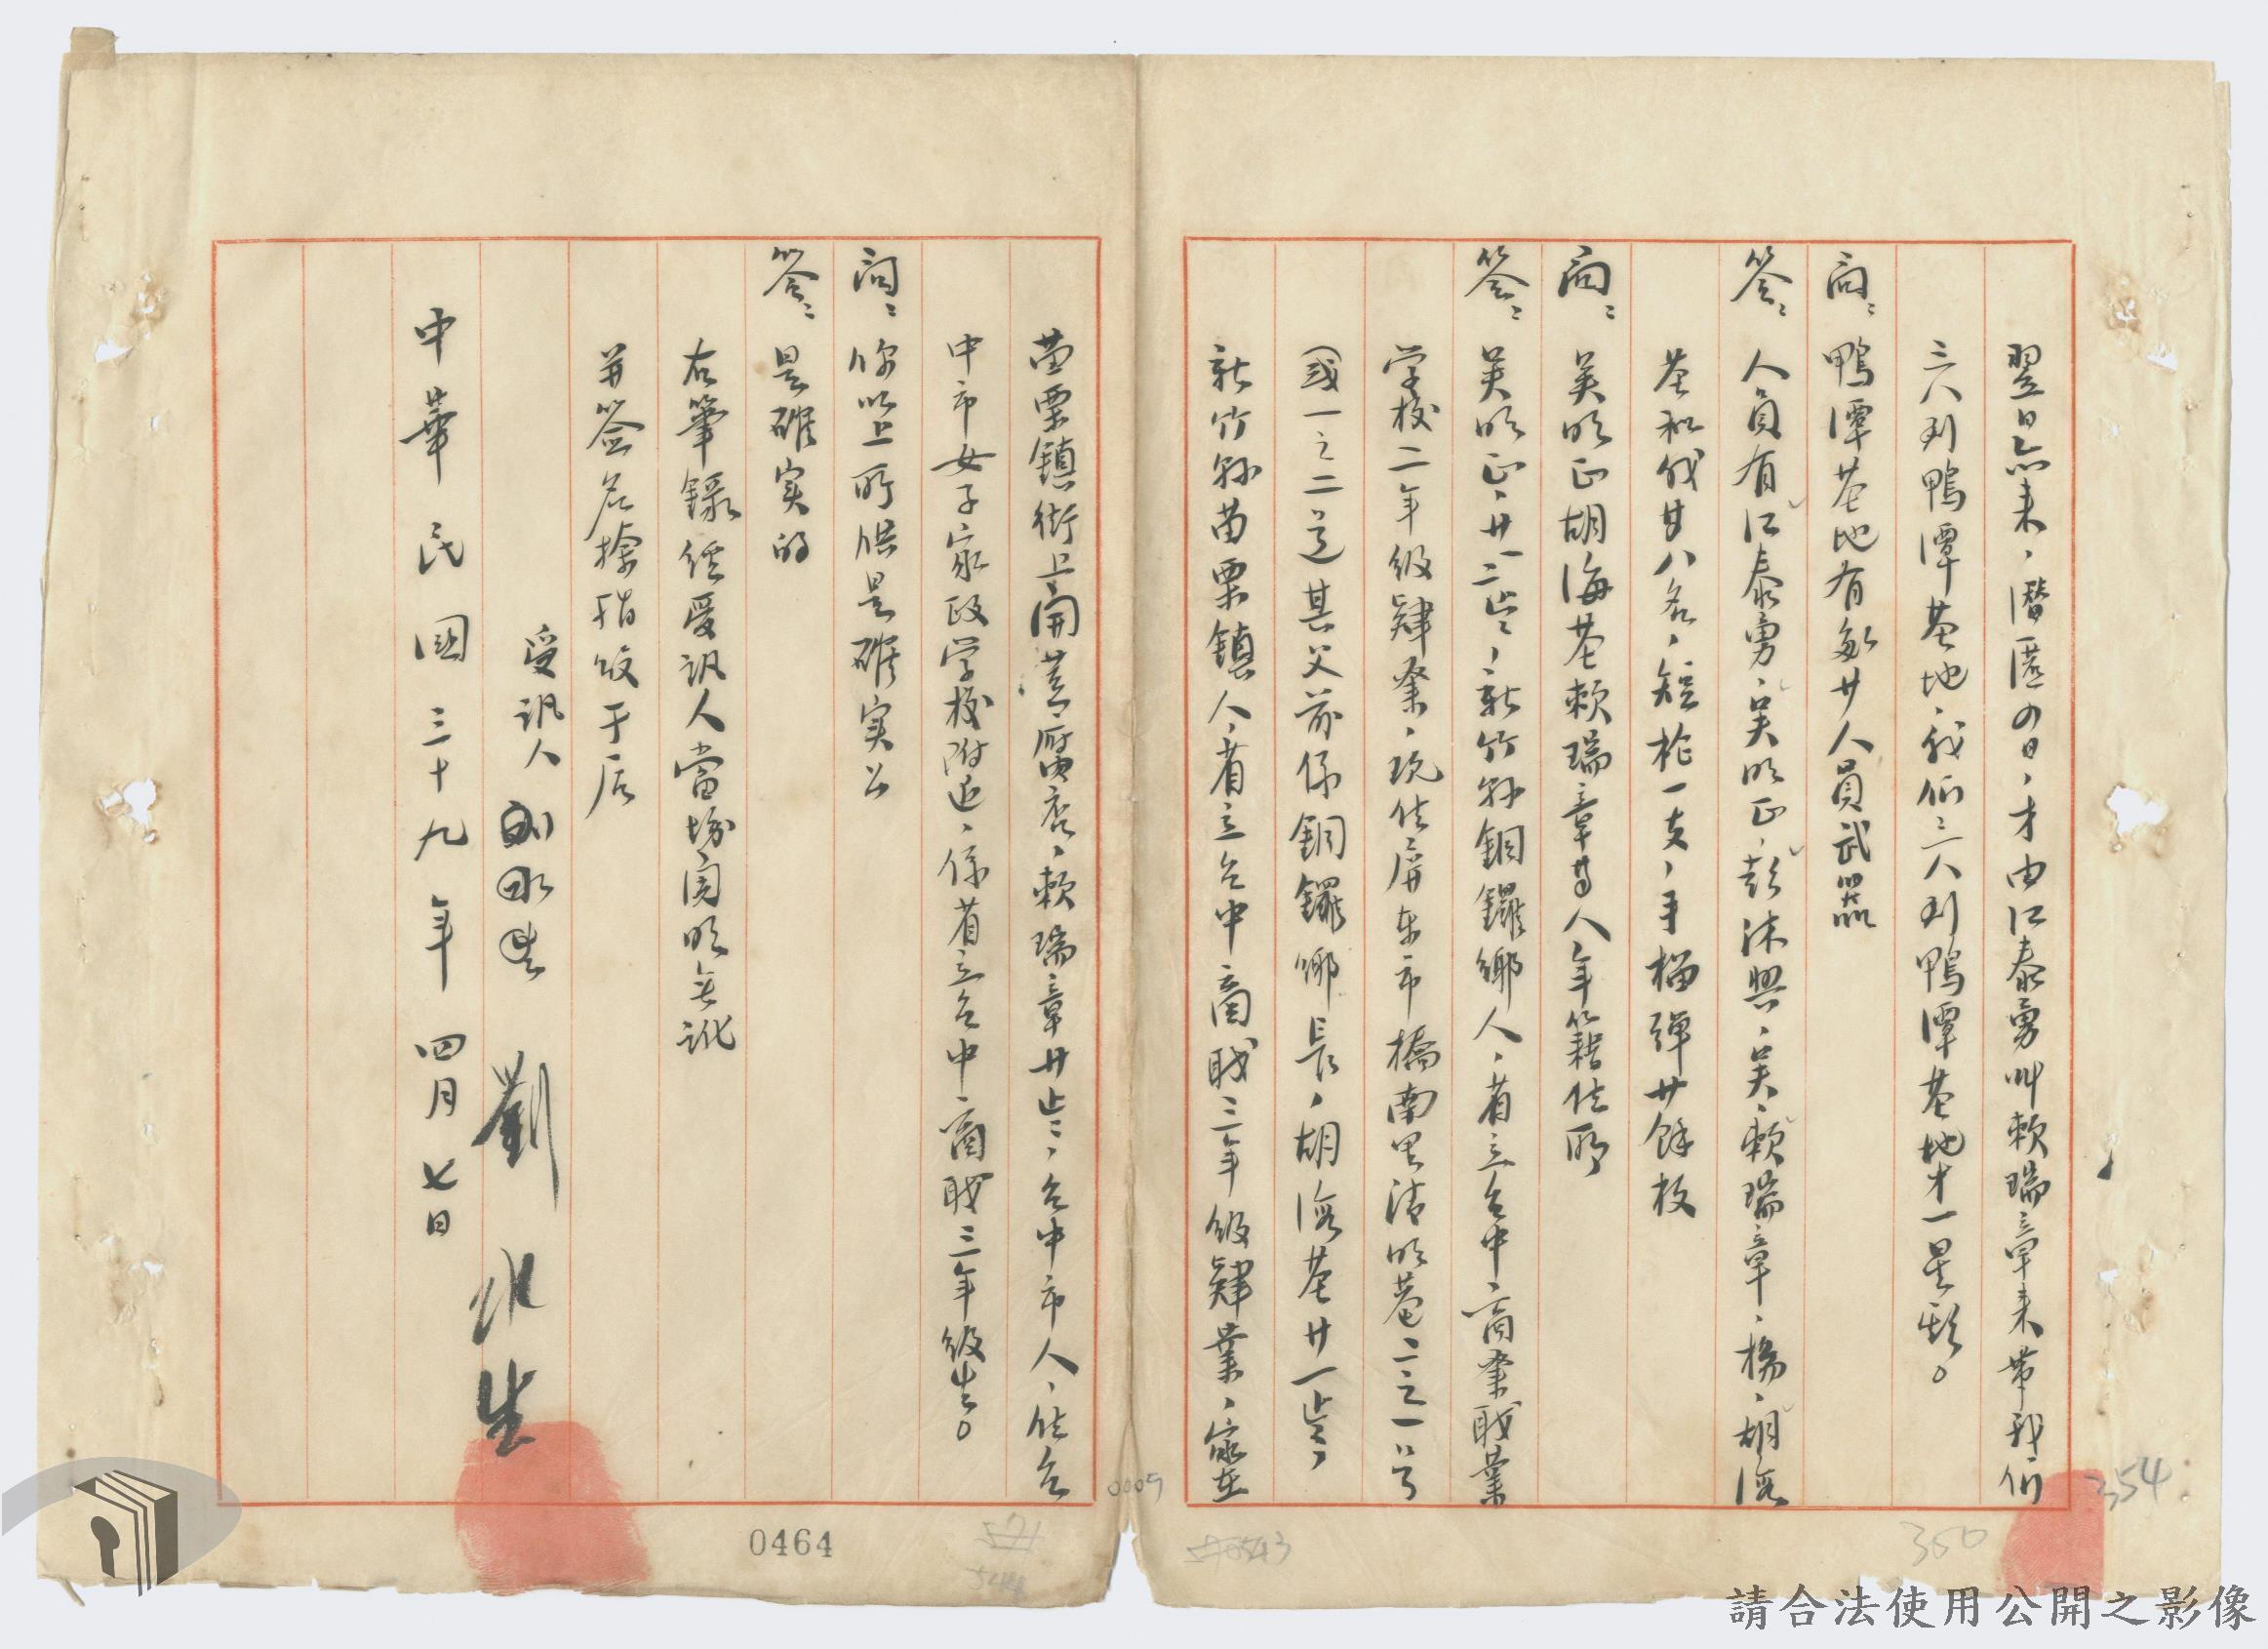 翌日亦未，潛匿四日，才由江泰勇叫賴瑞章來帶我们
三人到鴨潭基地，我们三人到鴨潭基地才一星期。
問：鴨潭基地有多少人員武器
答：人員有江泰勇、吴明正、彭沐興、吴、賴瑞章、楊、胡海
基和我廿八名，短槍一支，手榴弹廿餘枚
問：吴明正胡海基賴瑞章等人年籍住所
答：吴明正，廿二岁，新竹縣銅鑼鄉人，省立台中商業職業
学校二年级肄業，现住屏東市橋南里清明巷二之一号
（或一之二号）其父前係銅鑼鄉長，胡海基廿一岁，
新竹縣苗栗鎮人，省立台中商職三年级肄業，家在
苗栗鎮街上開 店，賴瑞章廿岁，台中市人，住台
中市女子家政学校附近，係省立台中商職三年级生。
問：你以上所供是確实么
答：是確实的
右筆錄经受訊人當場閱明無訛
并簽名捺指紋于后
受訊人 劉水生 劉水生
中華民國三十九年四月七日
0464
0005
354
350
請合法使用公開之影像